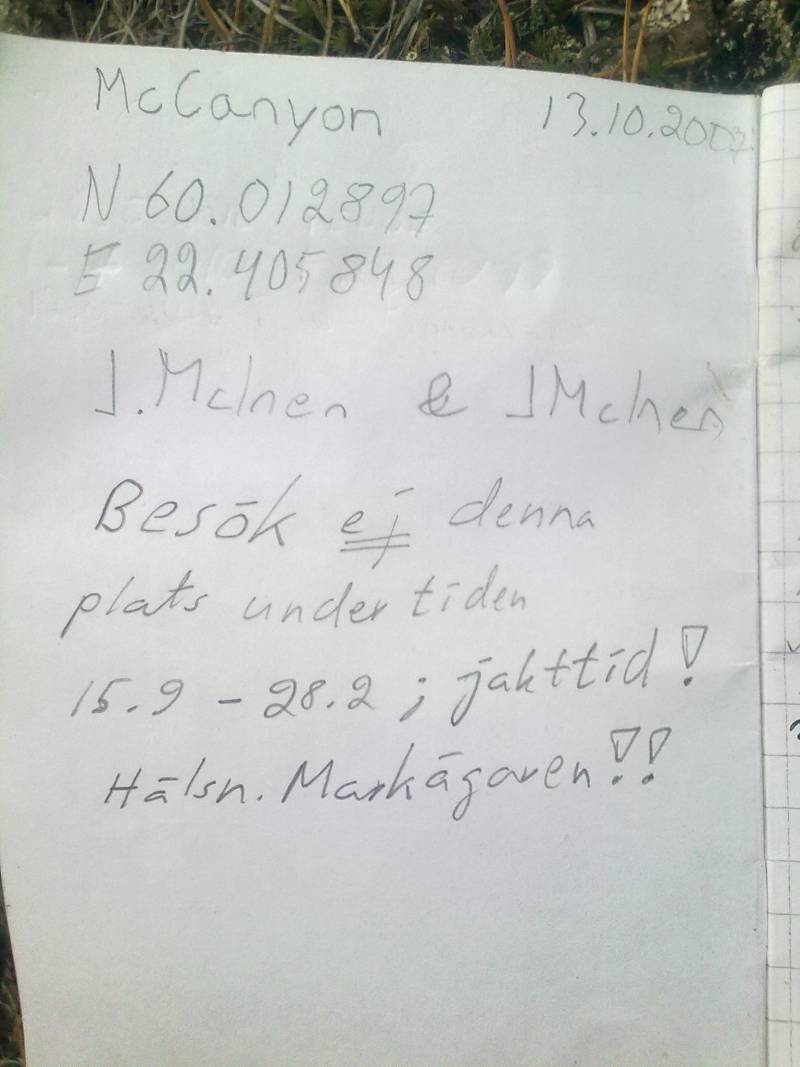 McCanyon 13.10.2007
N 60.012897
E 22.405848
J.McInen & J McInen
Besök ej denna
plats under tiden
15.9 - 28.2 ; jakttid!
Hälsn. Markägaren!!